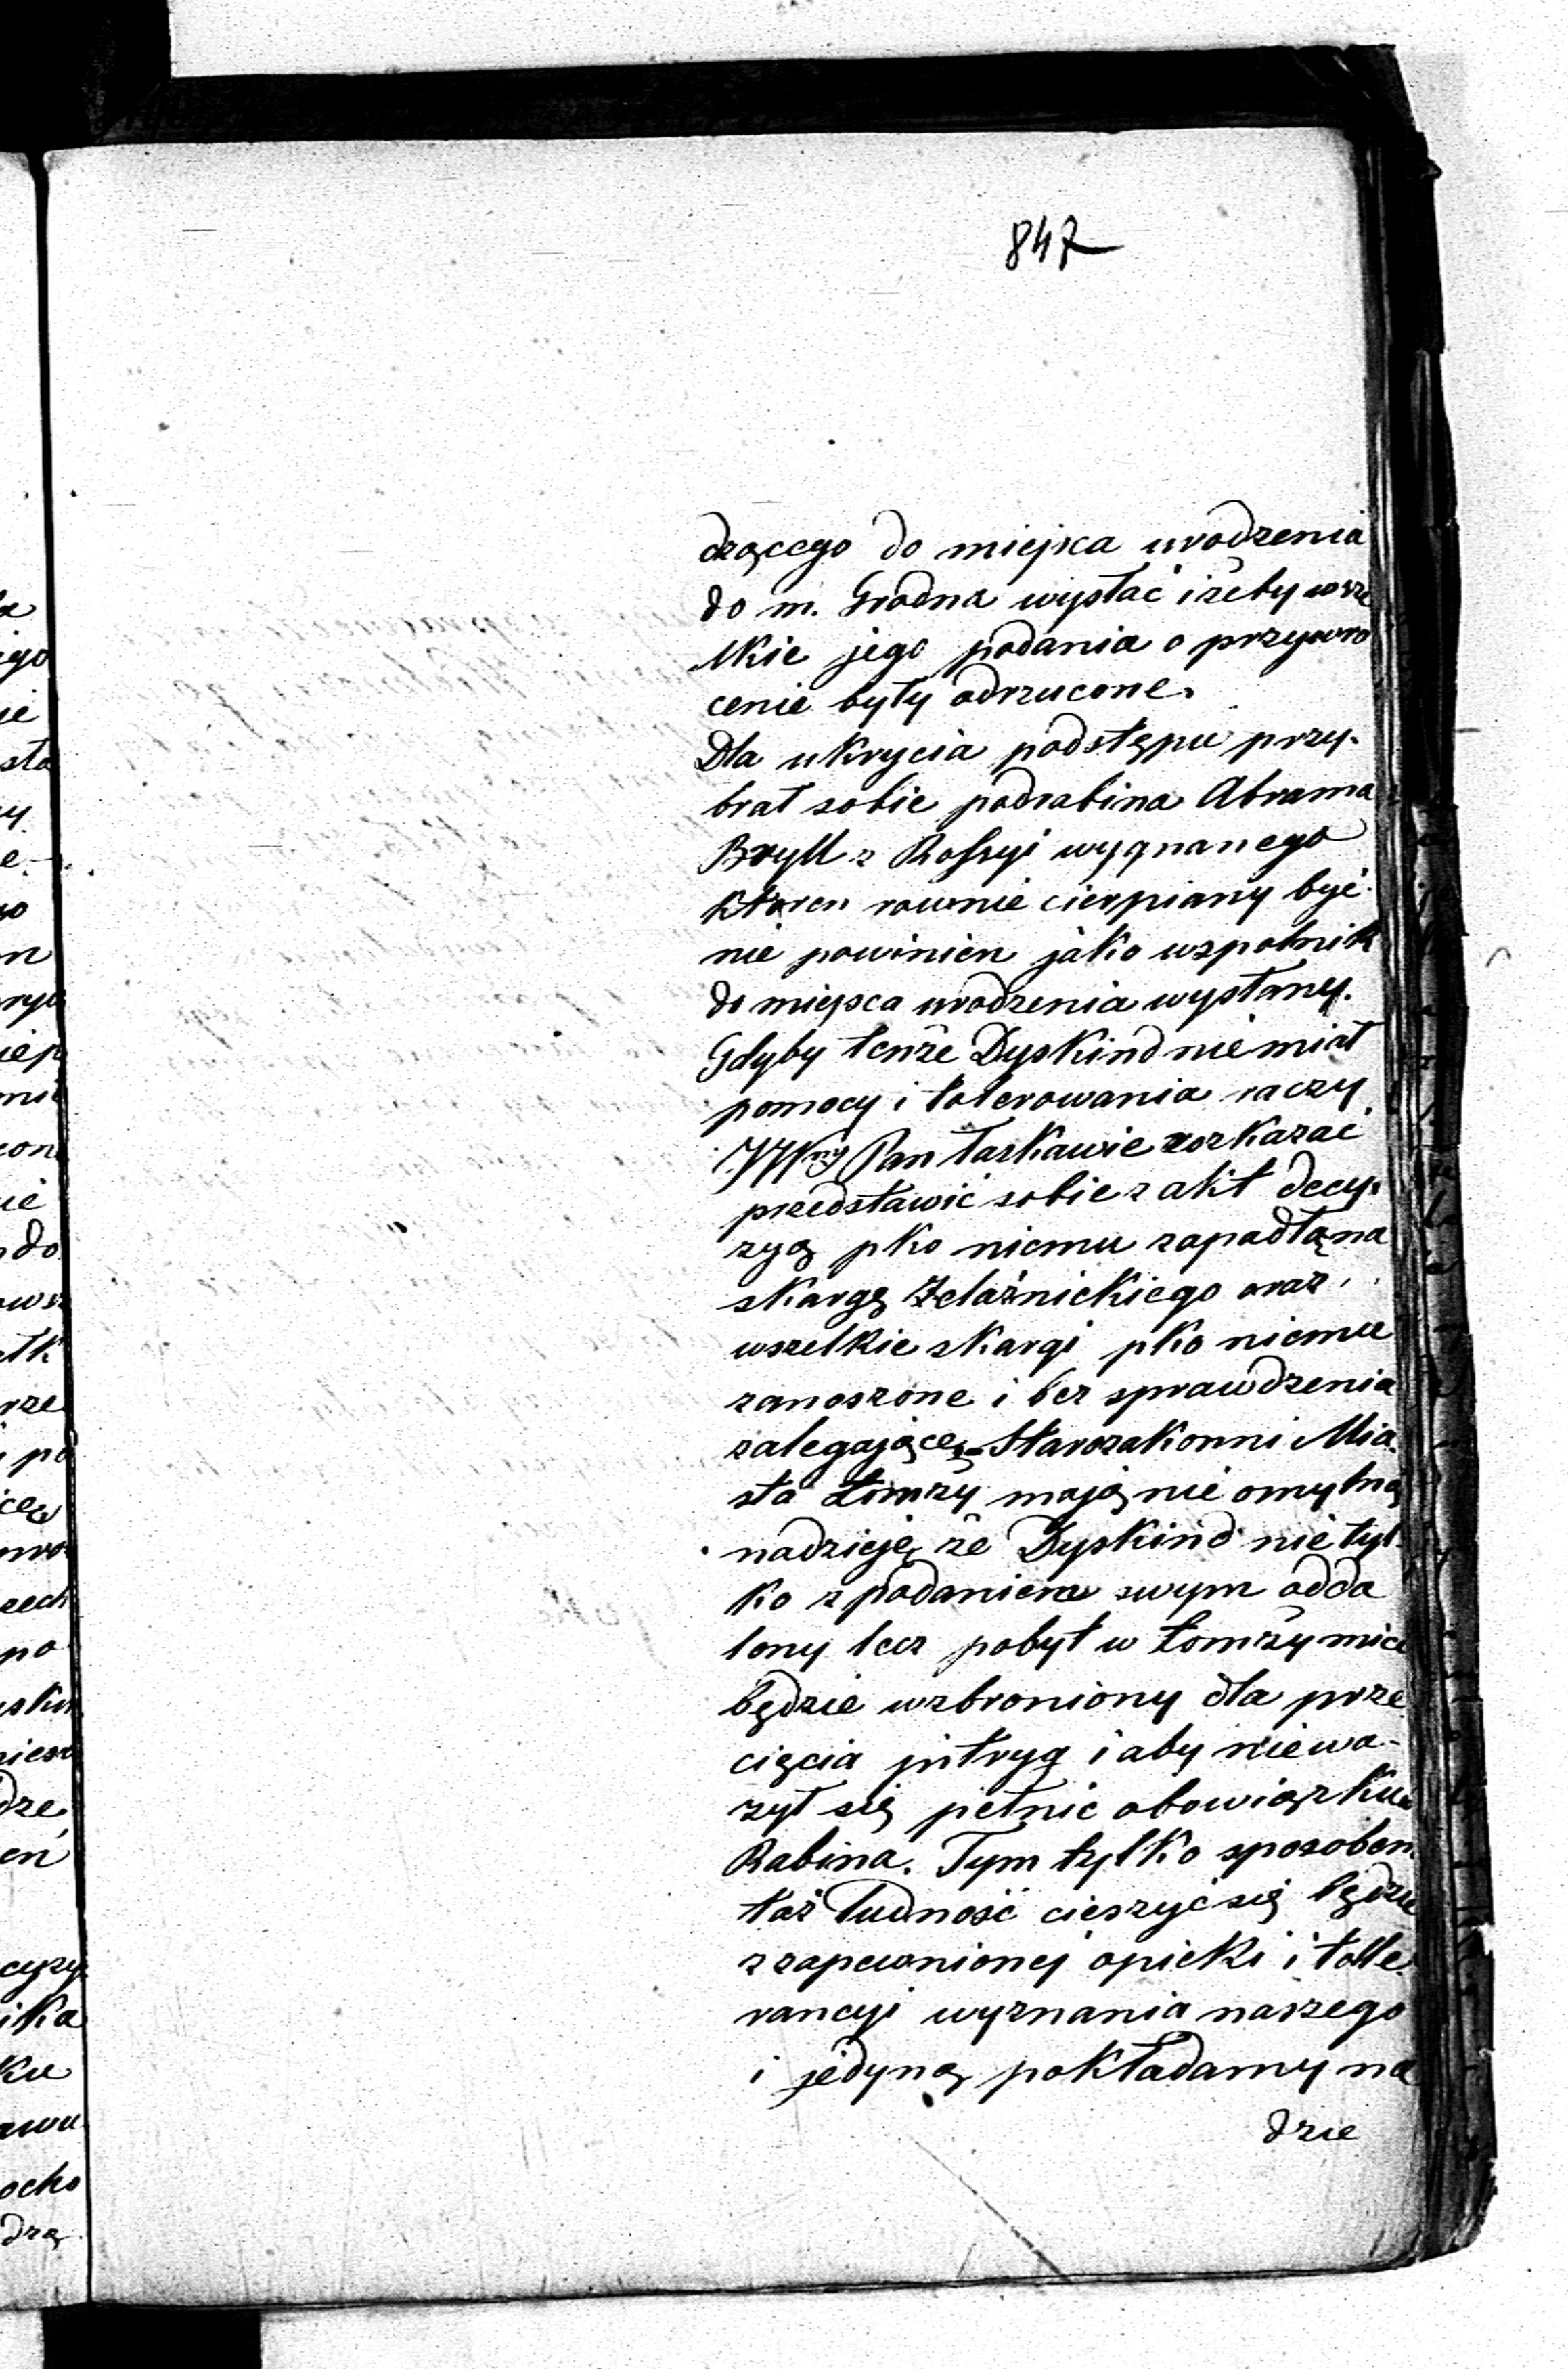 847
dzącego do miejsca urodzenia
do m. Grodna wysłać i żeby wsze
lkie jego podania o przywro
cenie były odrzucone.
Dla ukrycia podstępu przy-
brał sobie podrabina Abrama
Bryll z Rossyi wygnanego
ktoren rownie cierpiany być
nie powinien jako wspolnik
do miejsca urodzenia wysłany.
Gdyby tenże Dyskind nie miał
pomocy i tolerowania raczy
JWny Pan łaskawie rozkazać
przedstawić sobie z akt decy-
zyą pko niemu zapadłą na
skargę Żelaźnickiego oraz
wszelkie skargi pko niemu
zanoszone i bez sprawdzenia
zalegające, Starozakonni Mia
sta Łomży mają nie omylną
nadzieję że Dyskind nie tyl
ko z podaniem swym odda
lony lecz pobyt w Łomży
będzie wzbroniony dla prze
cięcia intryg i aby niewa-
żył się pełnić obowiązku
Rabina. Tym tylko sposobem
taż ludność cieszyć się będzie
z zapewnionej opieki i tolle
rancyi wyznania naszego
i jedyną pokładamy na
dzie